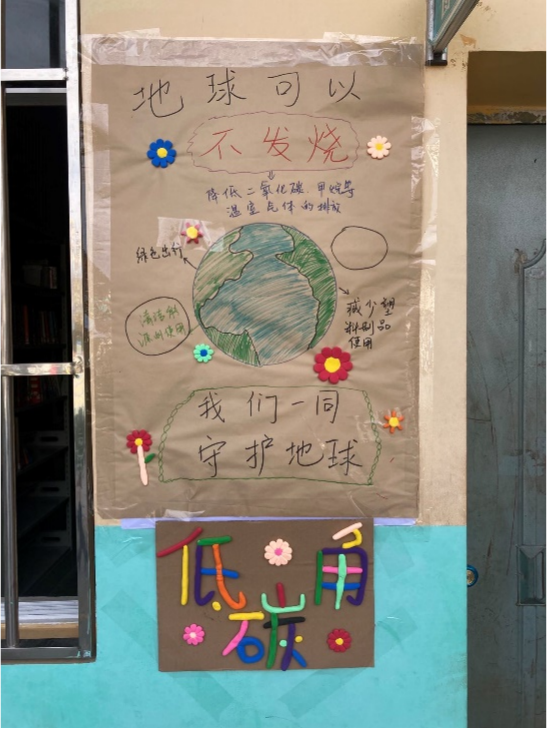 地球可以
不发烧
降低二氧化碳 甲烷等
温室气体的排放
绿色出行
清洁能
源的使用
减少塑
料制品
使用
我们一同
守护地球
低碳角